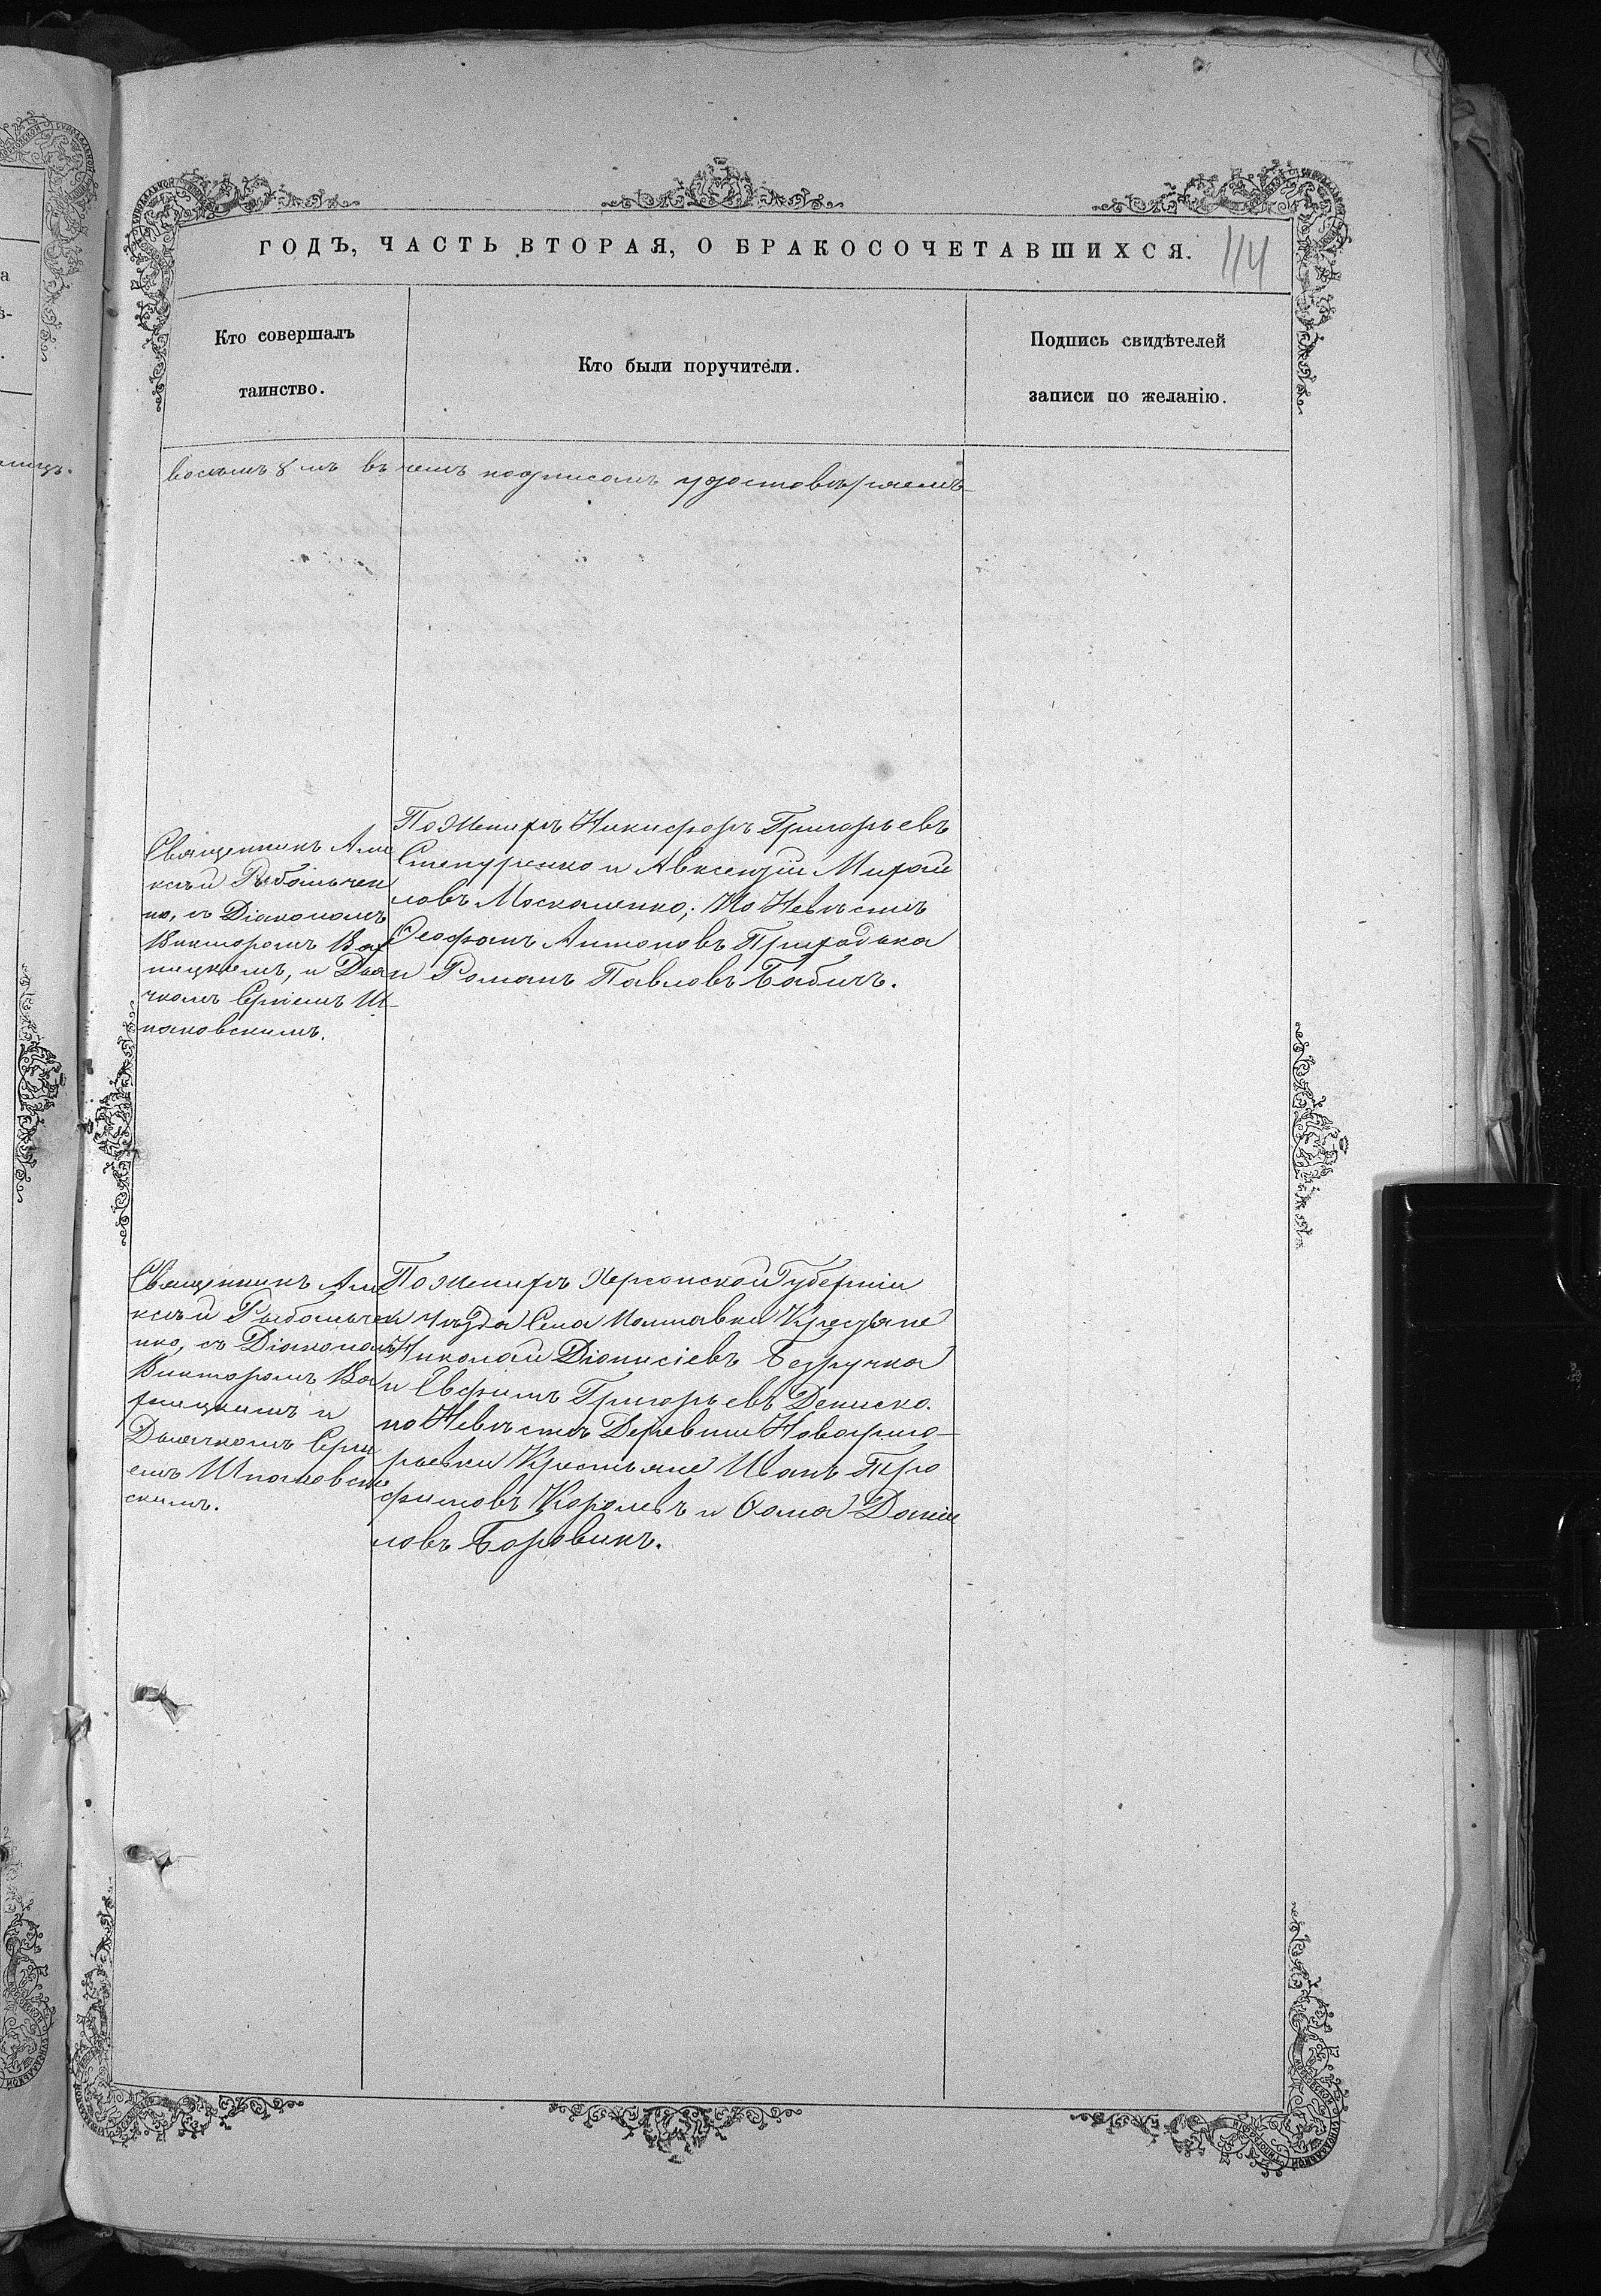 ГОДЪ, ЧАСТЬ ВТОРАЯ, О БРАКОСОЧЕТАВШИХСЯ.
114
Кто совершалъ
таинство.
Кто были поручители.
Подпись свидѣтелей
записи по желанію.
въ чемъ подписомъ удостовѣряемъ
Священникъ Але
ксѣй Рыбальчен
ко, съ Діакономъ
Викторомъ
и Дья
чкомъ Сергіемъ Ш
паковскимъ.
По Женихѣ Никифоръ Григорьевъ
Степуренко и Авксентій Михай
ловъ Москаленко; По Невѣстѣ
Ѳеофанъ Антоновъ Приходька
и Романъ Павловъ Бабичъ.
Священникъ Але
ксѣй Рыбальчен
ко, съ Діакономъ
Викторомъ
и
Дьячкомъ Серги
емъ Шпаковск
скимъ.
По Женихѣ Херсонской Губерніи
и Уѣзда Села Полтавки Крестяне
Николай Діонисіевъ Безручка
и Евфимъ Григорьевъ Дениско.
по Невѣстѣ Деревни Новогриго-
рьевки Крестьяне Иванъ Тро
фимовъ Королевъ и Ѳома Даніи
ловъ Боровикъ.